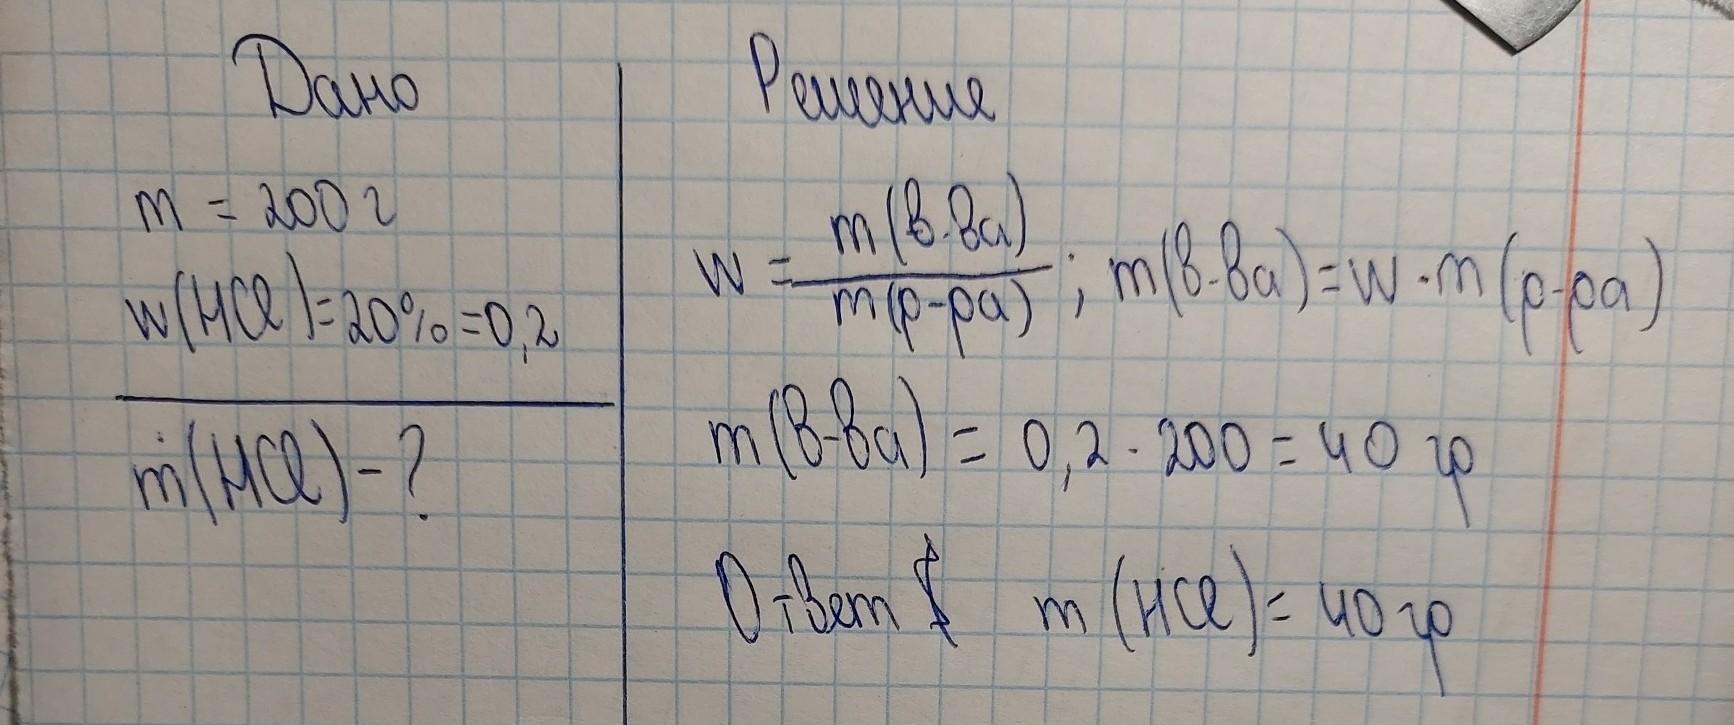 Дано
m = 200 г
w(HCl)=20%=0,2
m(HCl)-?
Решение
w = m(в-ва) / m(р-ра) ; m(в-ва)=w·m(р-ра)
m(в-ва) = 0,2 · 200 = 40 гр
Ответ m (HCl)= 40 гр